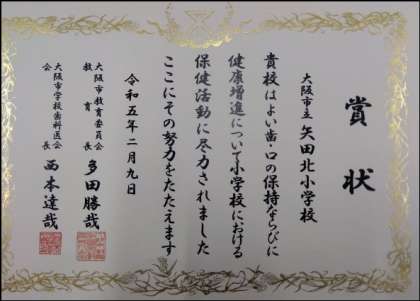 賞状
大阪市立 矢田北小学校
貴校はよい歯・口の保持ならびに
健康増進について小学校における
保健活動に尽力されました
ここにその努力をたたえます
令和五年二月九日
大阪市教育委員会
教育長 多田勝哉
大阪市学校歯科医会
会長 西本達哉